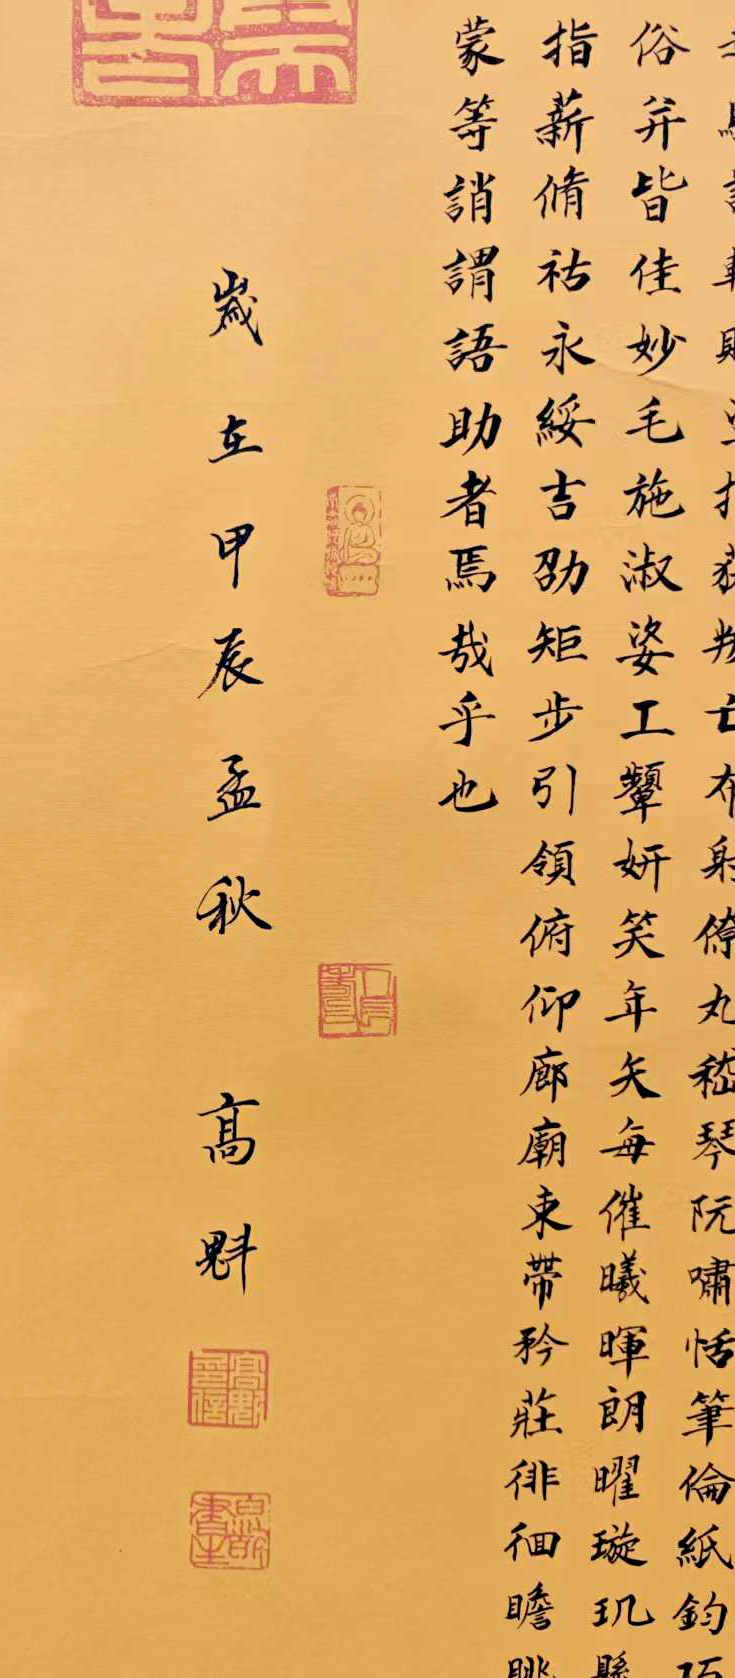 叛亡布射僚丸嵇琴阮嘯恬筆倫紙鈞巧
俗并皆佳妙毛施淑姿工顰妍笑年矢每催曦暉朗曜璇玑懸
指薪脩祜永綏吉劭矩步引領俯仰廊廟束帶矜莊徘徊瞻眺
蒙等誚謂語助者焉哉乎也
歲在甲辰孟秋 高魁
高魁印信